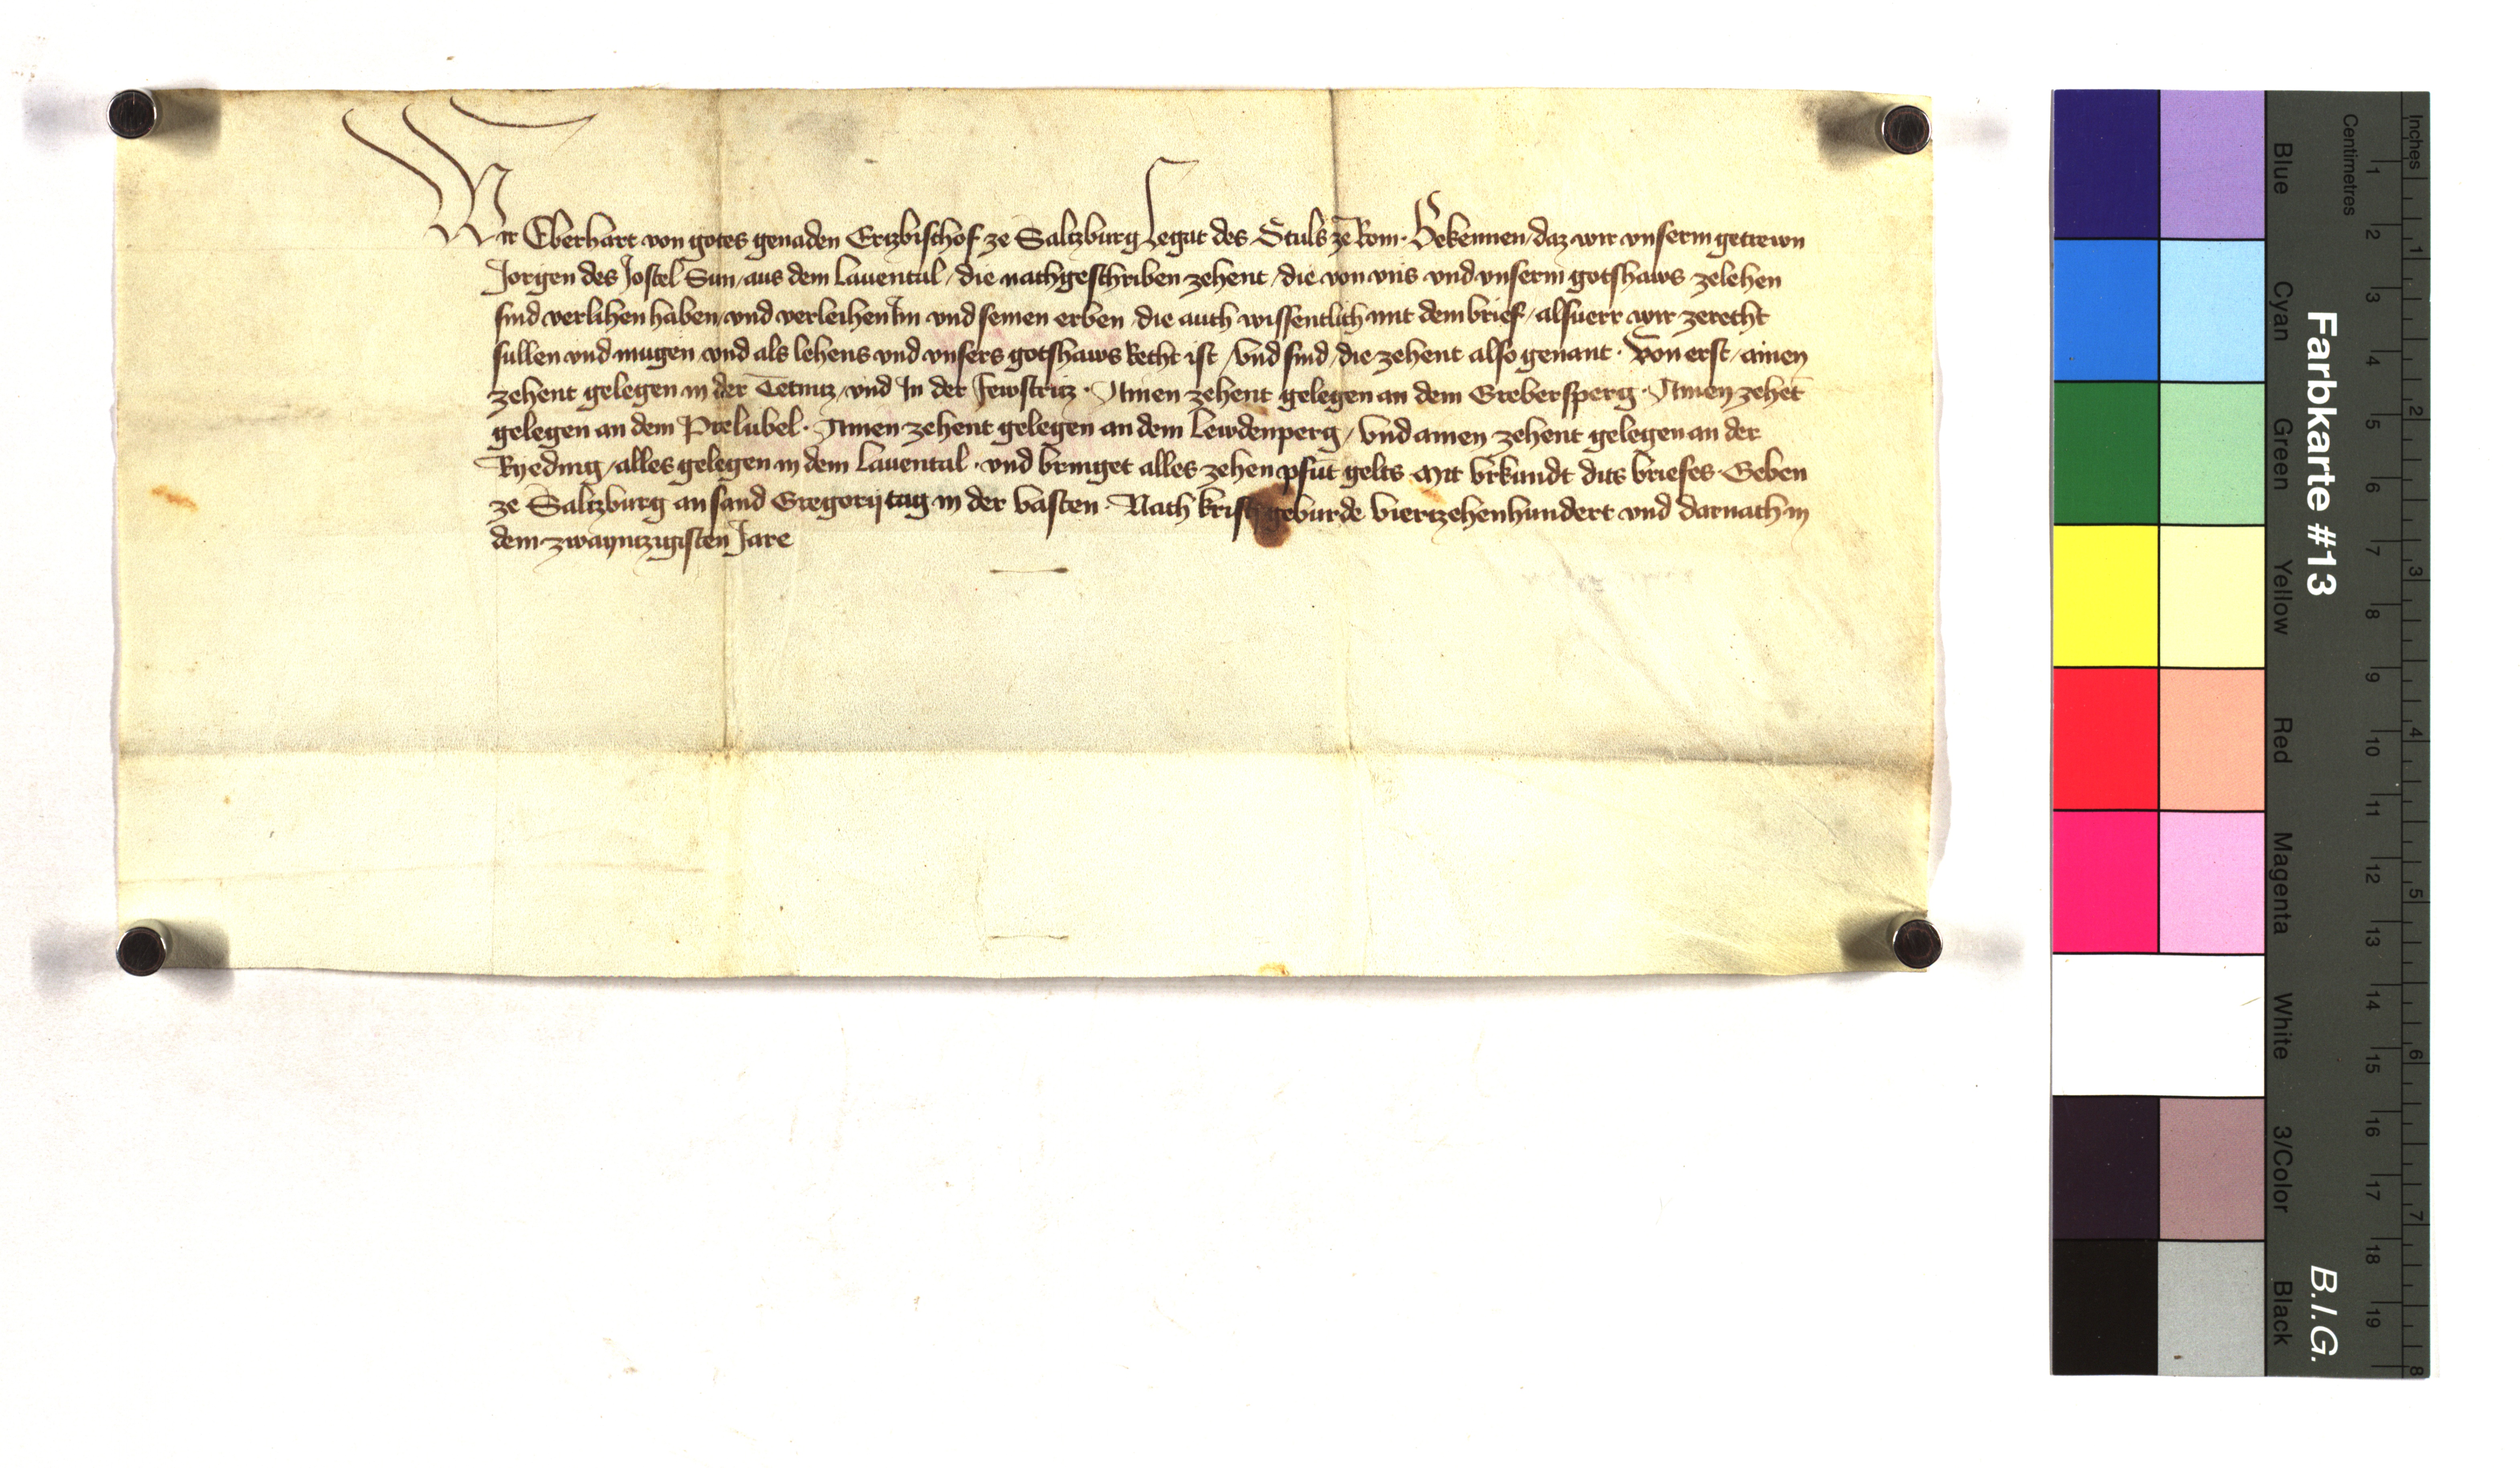 Wir Eberhart von gotes genaden Ertzbischof ze Saltzburg Legat des Stuls ze Rom · Bekennen / daz wir vnserm getrewn
Jorgen des Jostel Sun / aus dem Lauental / die nachgeschriben zehent / die von vns vnd vnserm gotshaws zelehen
sind verlihen haben / vnd verleihen Im vnd seinen erben / die auch wissentlich mit dem brief / alsuerr wir zerecht
sullen vnd mugen vnd als lehens vnd vnsers gotshaws Recht ist / Vnd sind / die zehent also genant · Von erst / ainen
zehent gelegen in der Tetnitz / vnd In der Fewstritz · Ainen zehent gelegen an dem Grebersperg · Ainen zehēt
gelegen an dem Prelubel · Ainen zehent gelegen an dem Lewdenperg / Vnd ainen zehent gelegen an der
Ryeding / alles gelegen in dem Lauental · vnd bringet alles zehen pfūt gelts Mit vrkundt dits briefes · Geben
ze Saltzburg an sand Gregorij tag in der vasten · Nach Krists geburde Viertzehenhundert vnd darnach in
dem zwayntzigisten Jare
Farbkarte #13
B.I.G.
Blue
Cyan
Green
Yellow
Red
Magenta
White
3/Color
Black
Centimetres
1 2 3 4 5 6 7 8 9 10 11 12 13 14 15 16 17 18 19
Inches
1 2 3 4 5 6 7 8